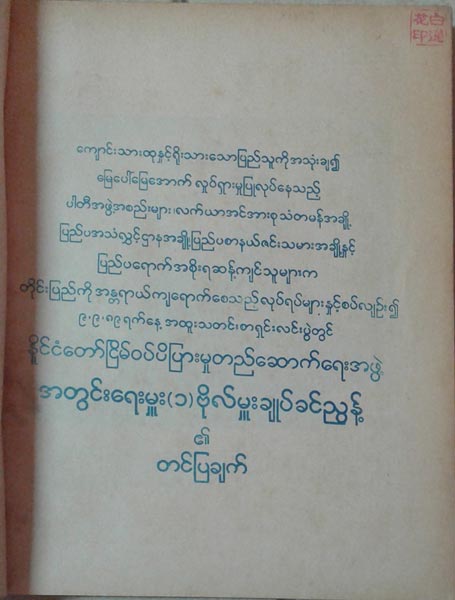 ကျောင်းသားထုနှင့်ရိုးသားသောပြည်သူကိုအသုံးချ၍
မြေပေါ်မြေအောက် လှုပ်ရှားမှုပြုလုပ်နေသည့်
ပါတီအဖွဲ့အစည်းများ၊လက်ယာအင်အားစုသံတမန်အချို့
ပြည်ပအသံလွှင့်ဌာနအချို့ပြည်ပစာနယ်ဇင်းသမားအချို့နှင့်
ပြည်ပရောက်အစိုးရဆန့်ကျင်သူများက
တိုင်းပြည်ကိုအန္တရာယ်ကျရောက်စေသည့်လုပ်ရပ်များနှင့်စပ်လျဉ်း၍
၉.၉.၈၉ရက်နေ့ အထူးသတင်းစာရှင်းလင်းပွဲတွင်
နိုင်ငံတော်ငြိမ်ဝပ်ပိပြားမှုတည်ဆောက်ရေးအဖွဲ့
အတွင်းရေးမှူး(၁)ဗိုလ်မှူးချုပ်ခင်ညွန့်
၏
တင်ပြချက်